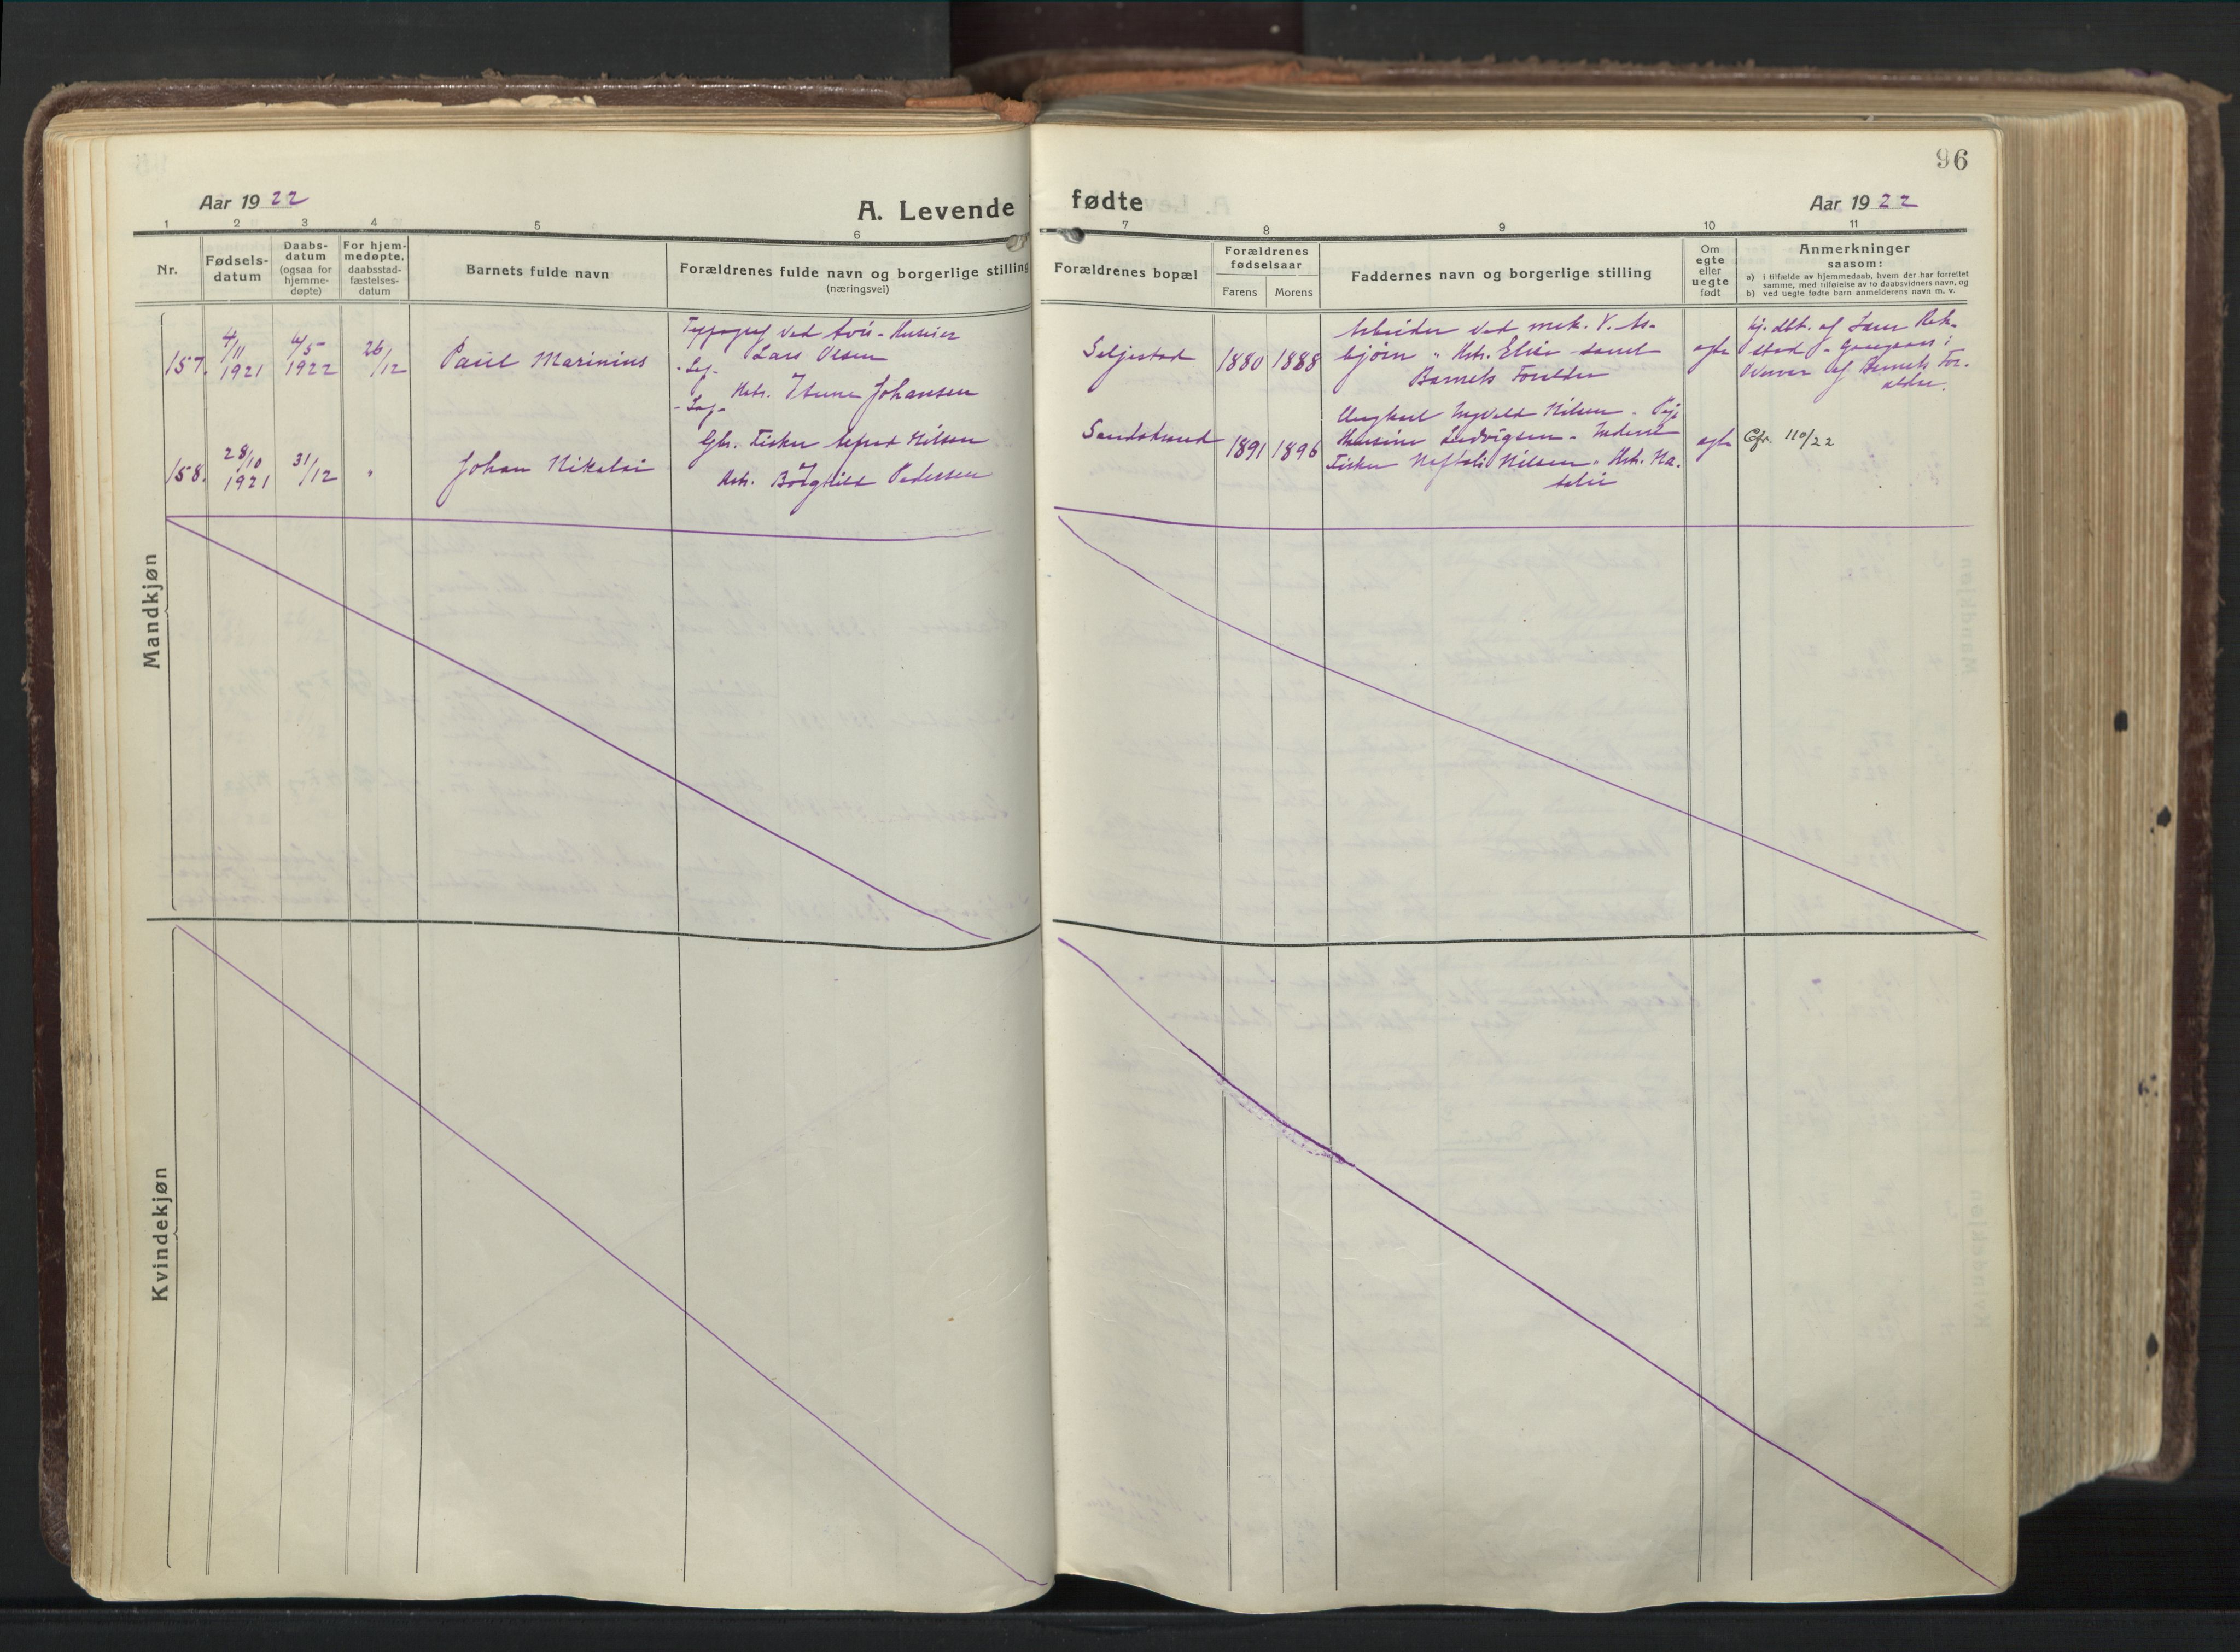 96
Aar 19 22
A. Levende fødte
Aar 19 22
1 2 3 4 5 6 7 8 9 10 11
Nr.
Fødsels-
datum
Daabs-
datum
(ogsaa for
hjemme-
døpte)
For hjem-
medøpte,
daabsstad-
fæstelses-
datum
Barnets fulde navn
Forældrenes fulde navn og borgerlige stilling
(næringsvei)
Forældrenes bopæl
Forældrenes
fødselsaar
Farens Morens
Faddernes navn og borgerlige stilling
Om
egte
eller
uegte
født
Anmerkninger
saasom:
a) i tilfælde av hjemmedaab, hvem der har forrettet
samme, med tilføielse av to daabsvidners navn, og
b) ved uegte fødte barn anmelderens navn m. v.
Mandkjøn
157.
4/11
1921
4/5
1922
26/12
Paul Marinius
Typograf ved Avis-
Lars Olsen
Hstr. Johansen
Seljestad
1880 1888
Arbeider ved mek. V. As-
bjørn " Hstr. Elise samt
Barnets Foreldre
egte
hj. dbt. af Rek-
stad -
af Barnets For-
ældre.
158.
28/10
1921
31/12
"
Johan Nikolai
Gbr. Fisker Nilsen
Hstr. Borghild Pedersen
Sandstrand
1891 1896
Ungkarl Ingvald Nilsen - Pige
Ludvigsen -
Fisker Naftali Nilsen " Hstr. Na-
talie
egte
Cfr. 110/22
Kvindekjøn